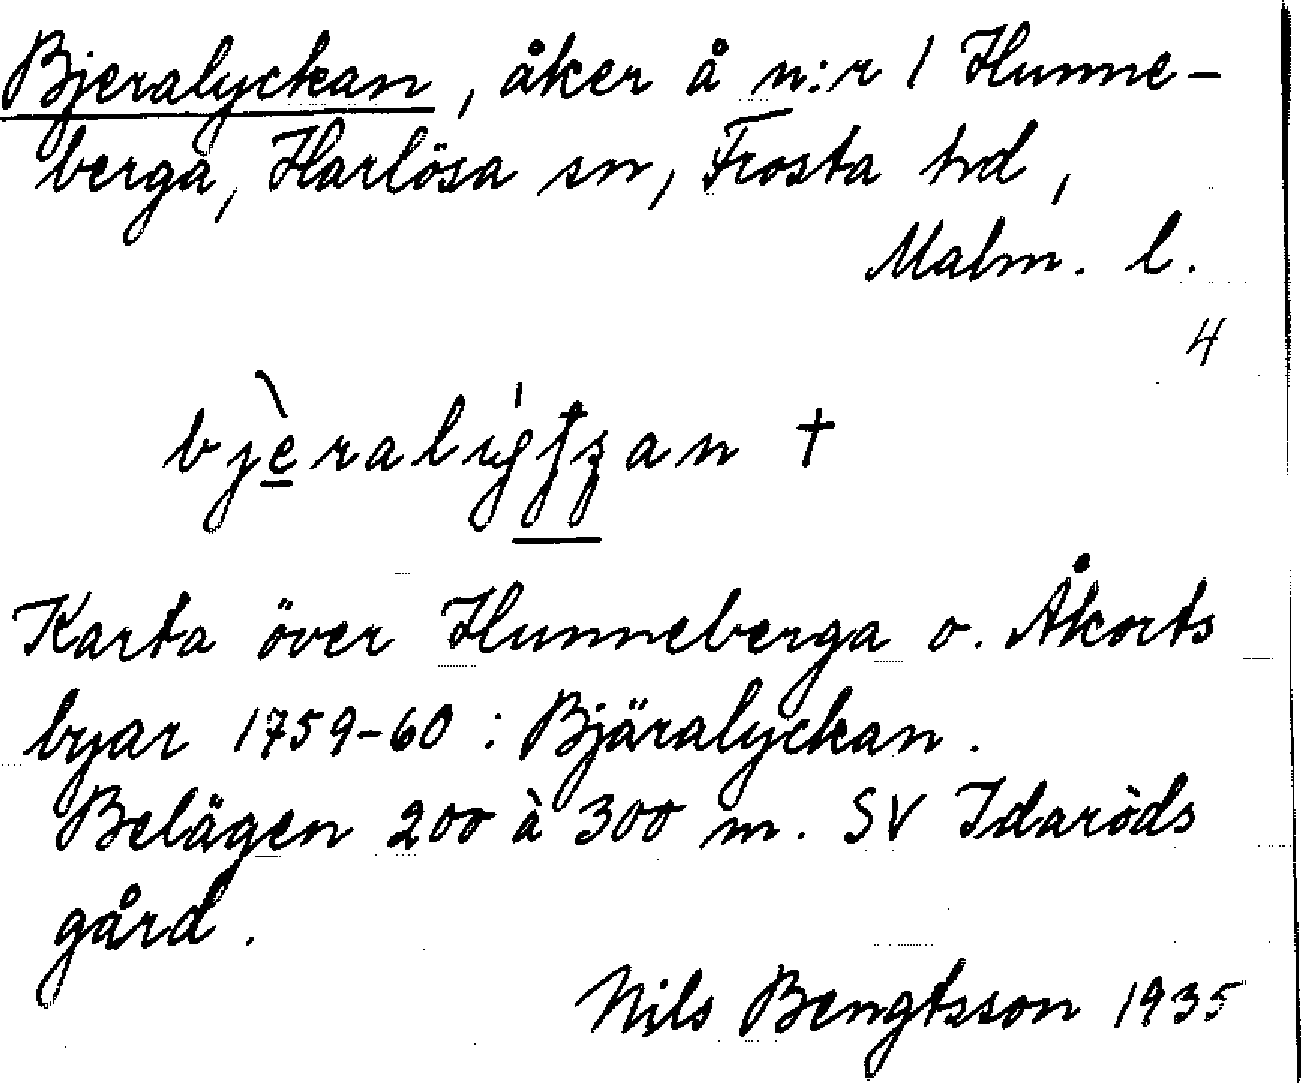 Bjeralyckan, åker å n:r 1 Hunne-
berga, Harlösa sn, Frosta hd,
Malm. l.
4
Karta över Hunneberga o. Åkorts
byar 1759-60: Bjäralyckan.
Belägen 200 à 300 m. SV Idaröds
gård.
Nils Bengtsson 1935